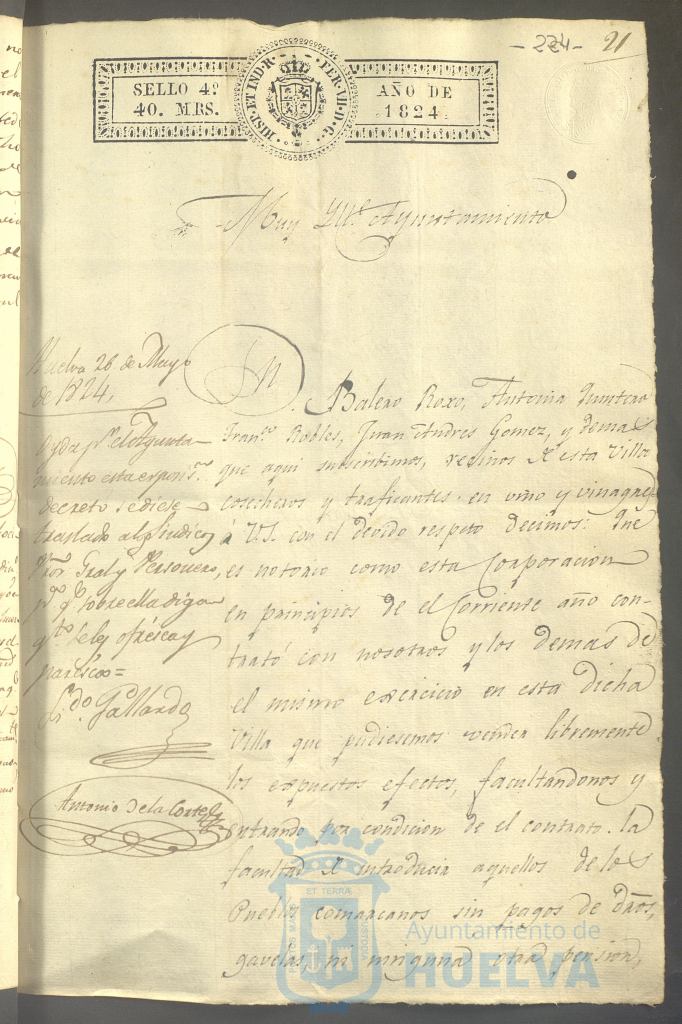 - 224 - 21
SELLO 4º
40. MRS.
HISP. ET IND. R. FER. VII. D. G.
AÑO DE
1824
Muy Ill.e Ayuntamiento
Huelva 26 de Mayo
de 1824,
Oyda p.r el Ayunta-
miento esta exposi.on
decreto se diese
traslado al sindico
Pror Gral y Personero,
p.a q.e sobre ella digan
q.to se les ofresca y
paresca=
L.do Gallardo
Antonio de la Corte
Balero Roxo, Antonio Quintero
Fran.co Robles, Juan Andres Gomez, y demas
que aqui suscrivimos, vecinos de esta Villa
cosecheros y traficantes en vino y vinagre
á V.S. con el devido respeto decimos: Que
es notorio como esta Corporacion
en principios de el Corriente año con-
trató con nosotros y los demas de
el mismo exercicio en esta dicha
Villa que pudiesemos vender libremente
los expuestos efectos, facultandonos y
entrando por condicion de el contrato la
facultad de introducir aquellos de los
Pueblos comarcanos sin pagos de dros,
gavelas, ni ninguna otra pension,
Ayuntamiento de
HUELVA